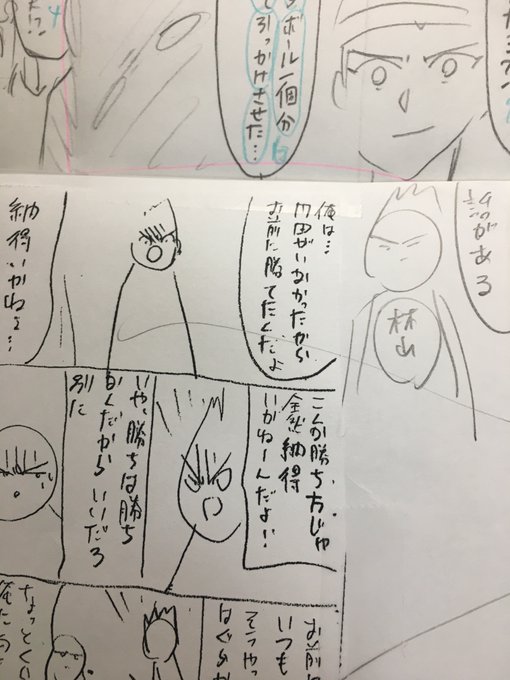 ボール一個分
引っかけさせた…
話がある
林山
俺は…
内田がいなかったから
お前に勝てたんだよ
納得いかねぇ…
こんな勝ち方じゃ
全然納得
いかねーんだよ!!
いや、勝ちは勝ち
なんだからいいだろ
別に
お前は
いつも
そうやっ
はぐらか
なっとくい